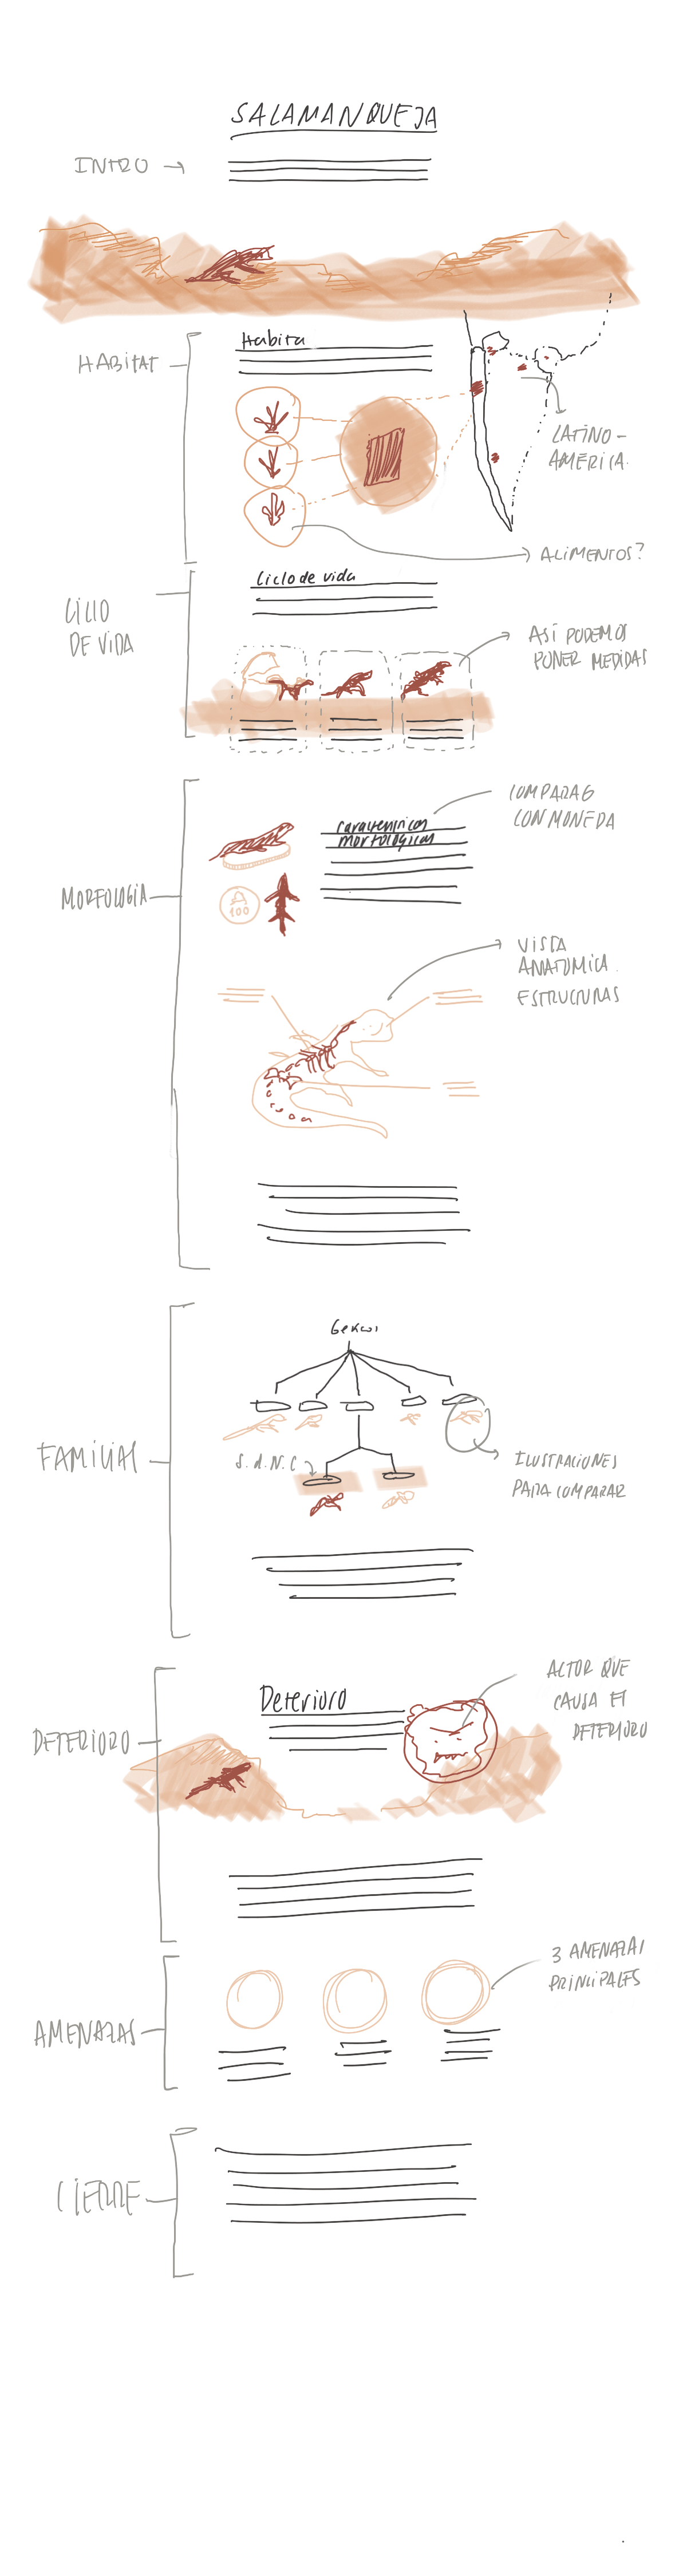 SALAMANQUEJA
INTRO
HABITAT
Habita
LATINO-
AMERICA.
ALIMENTOS?
CICLO
DE VIDA
Ciclo de vida
ASÍ PODEMOS
PONER MEDIDAS
MORFOLOGÍA
COMPARAR
CON MONEDA
características
morfológicas
100
VISTA
ANATOMICA.
ESTRUCTURAS
FAMILIAS
Geckos
S.d.N.C
ILUSTRACIONES
PARA COMPARAR
DETERIORO
Deterioro
ACTOR QUE
CAUSA EL
DETERIORO
AMENAZAS
3 AMENAZAS
PRINCIPALES
CIERRE